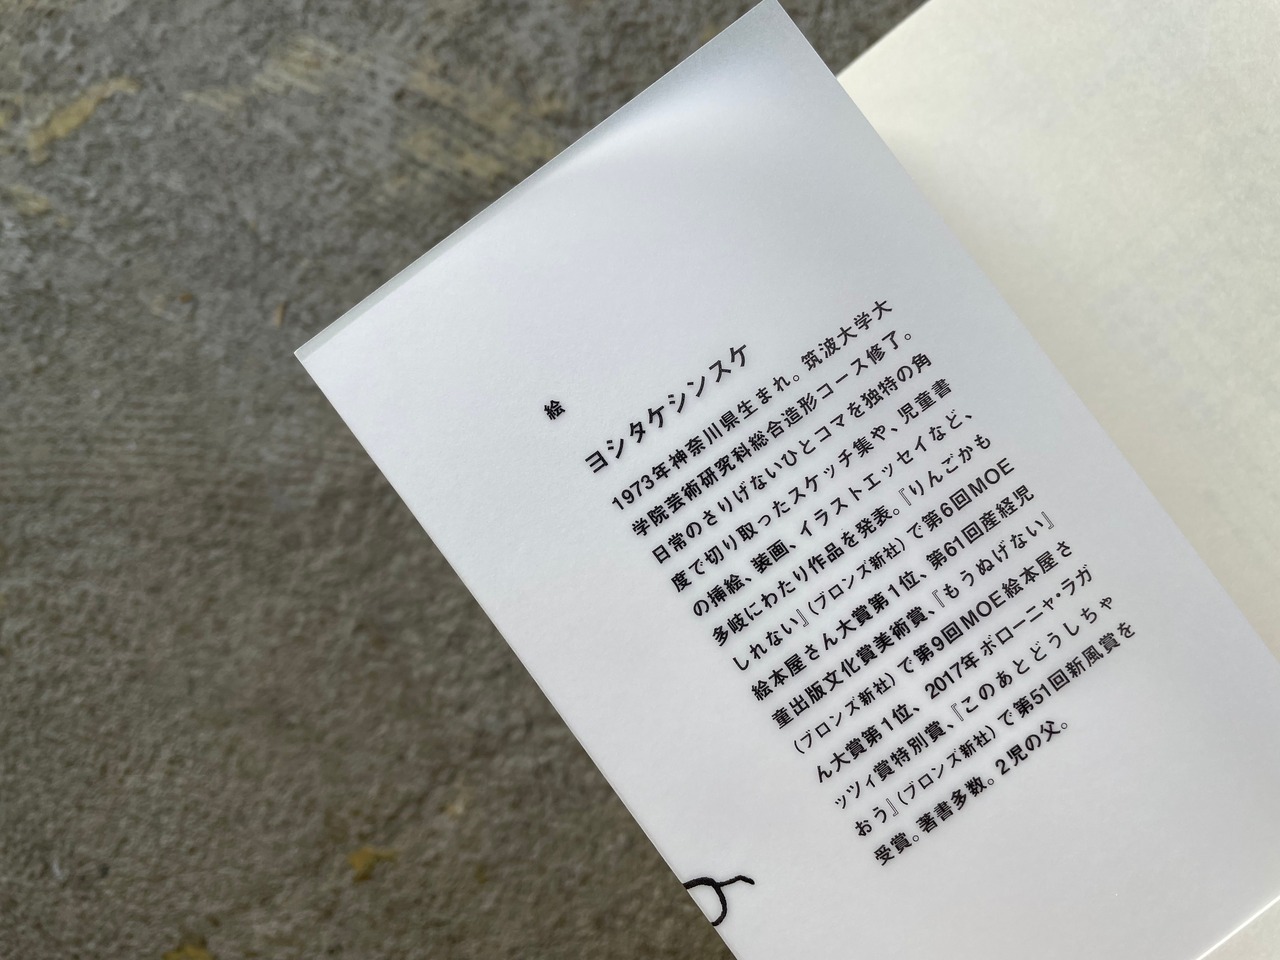 絵
ヨシタケシンスケ
1973年神奈川県生まれ。筑波大学大
学院芸術研究科総合造形コース修了。
日常のさりげないひとコマを独特の角
度で切り取ったスケッチ集や、児童書
の挿絵、装画、イラストエッセイなど、
多岐にわたり作品を発表。『りんごかも
しれない』(ブロンズ新社)で第6回MOE
絵本屋さん大賞第1位、第61回産経児
童出版文化賞美術賞、『もうぬげない』
(ブロンズ新社)で第9回MOE絵本屋さ
ん大賞第1位、2017年ボローニャ・ラガ
ッツィ賞特別賞、『このあとどうしちゃ
おう』(ブロンズ新社)で第51回新風賞を
受賞。著書多数。2児の父。